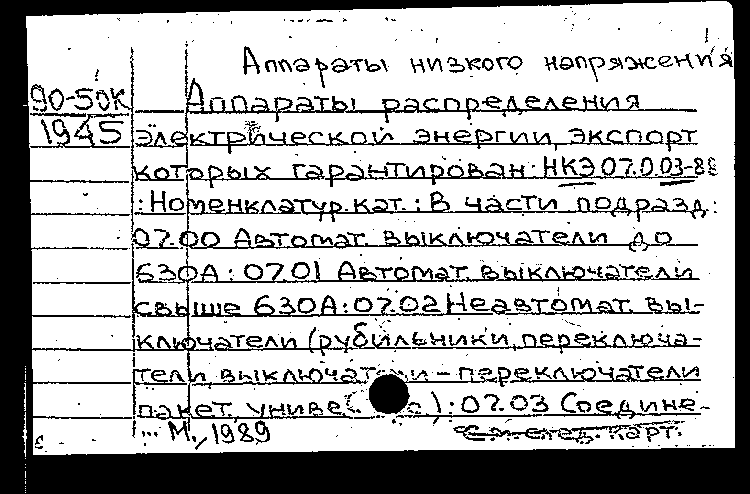 Аппараты низкого напряжения
90-50К Аппараты распределения
1945 электрической энергии, экспорт
которых гарантирован: НКЭ 07.0.03-88
: Номенклатур. кат. : В части подразд:
07.00 Автомат. выключатели до
630А: 07.01 Автомат. выключатели
свыше 630А: 07.02 Неавтомат. вы-
ключатели (рубильники, переключа-
тели, выключатели - переключатели
пакет. ): 07.03 Соедине-
... М., 1989 См. след. карт.